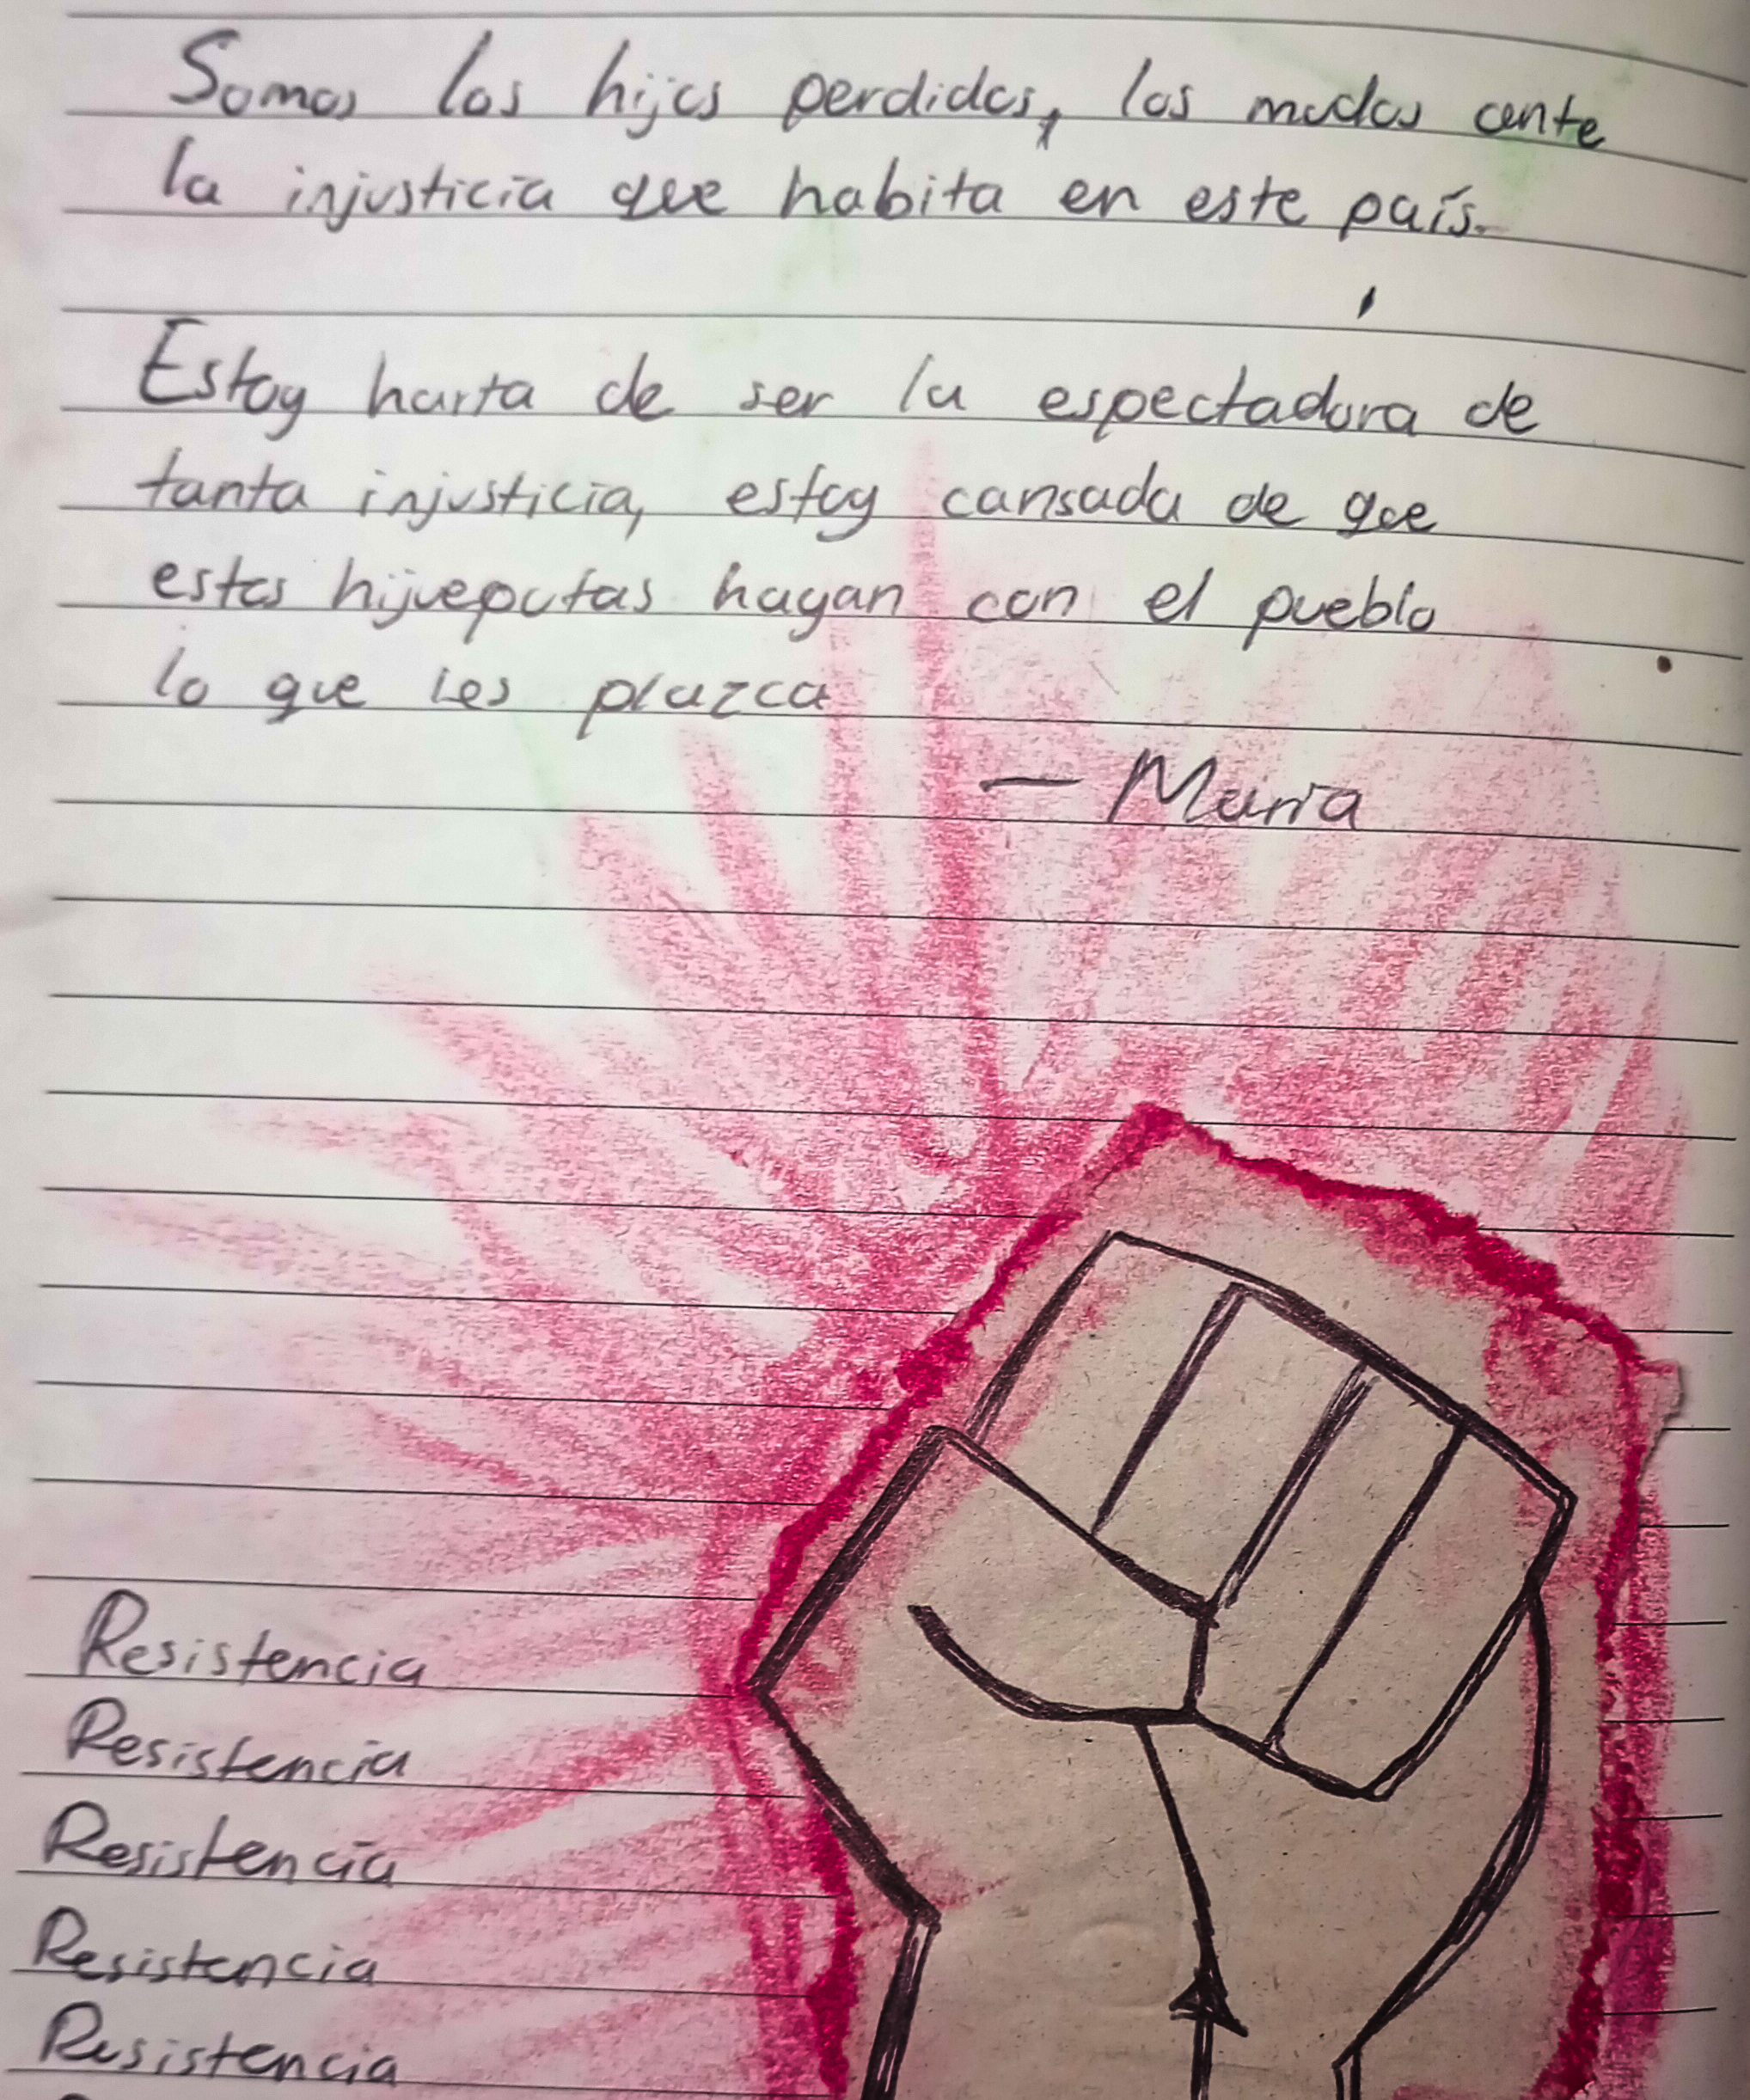 Somos los hijos perdidos, los mudos ante
la injusticia que habita en este país.
Estoy harta de ser la espectadora de
tanta injusticia, estoy cansada de que
estos hijueputas hagan con el pueblo
lo que les plazca
— Maria
Resistencia
Resistencia
Resistencia
Resistencia
Resistencia